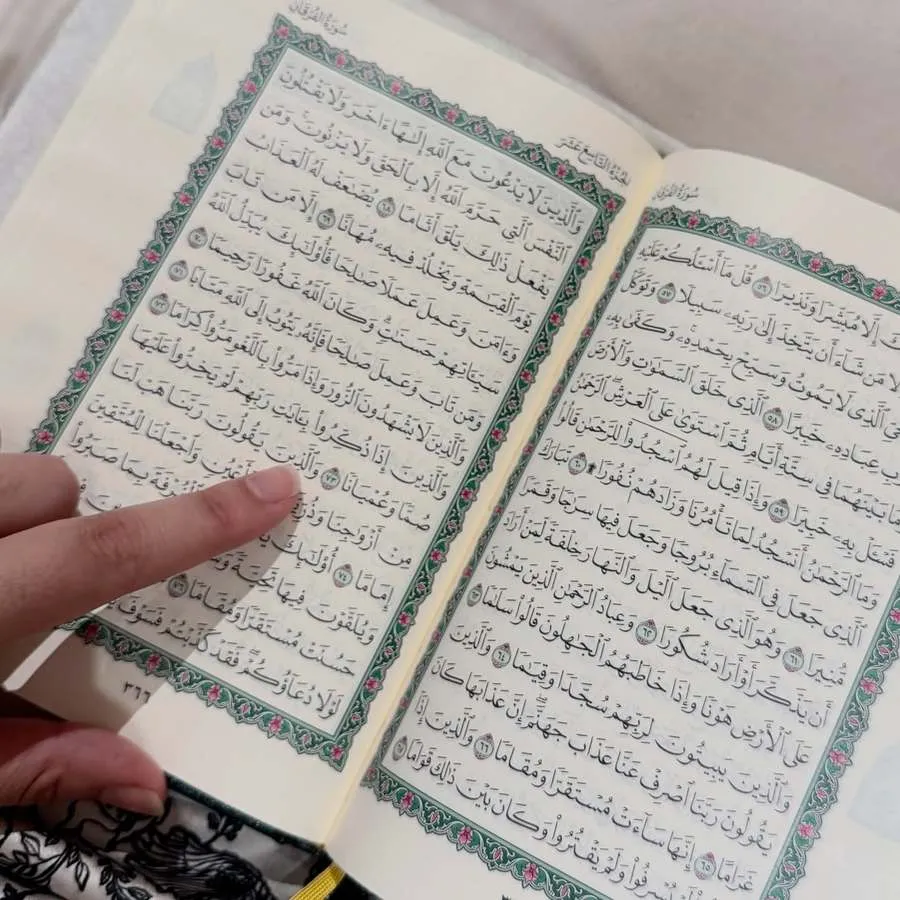 سُورَةُ الفُرْقَان
ـكَ إِلَّا مُبَشِّرًا وَنَذِيرًا ٥٦ قُلْ مَآ أَسْـَٔلُكُمْ عَلَيْهِ
مَن شَآءَ أَن يَتَّخِذَ إِلَىٰ رَبِّهِۦ سَبِيلًا ٥٧ وَتَوَكَّلْ
ٱلَّذِى لَا يَمُوتُ وَسَبِّحْ بِحَمْدِهِۦ وَكَفَىٰ بِهِۦ
عِبَادِهِۦ خَبِيرًا ٥٨ ٱلَّذِى خَلَقَ ٱلسَّمَٰوَٰتِ وَٱلْأَرْضَ
وَمَا بَيْنَهُمَا فِى سِتَّةِ أَيَّامٍ ثُمَّ ٱسْتَوَىٰ عَلَى ٱلْعَرْشِ ٱلرَّحْمَٰنُ
فَسْـَٔلْ بِهِۦ خَبِيرًا ٥٩ وَإِذَا قِيلَ لَهُمُ ٱسْجُدُوا۟ لِلرَّحْمَٰنِ قَالُوا۟
وَمَا ٱلرَّحْمَٰنُ أَنَسْجُدُ لِمَا تَأْمُرُنَا وَزَادَهُمْ نُفُورًا ۩ ٦٠ تَبَارَكَ
ٱلَّذِى جَعَلَ فِى ٱلسَّمَآءِ بُرُوجًا وَجَعَلَ فِيهَا سِرَٰجًا وَقَمَرًا
مُّنِيرًا ٦١ وَهُوَ ٱلَّذِى جَعَلَ ٱلَّيْلَ وَٱلنَّهَارَ خِلْفَةً لِّمَنْ أَرَادَ
أَن يَذَّكَّرَ أَوْ أَرَادَ شُكُورًا ٦٢ وَعِبَادُ ٱلرَّحْمَٰنِ ٱلَّذِينَ يَمْشُونَ
عَلَى ٱلْأَرْضِ هَوْنًا وَإِذَا خَاطَبَهُمُ ٱلْجَٰهِلُونَ قَالُوا۟ سَلَٰمًا ٦٣
وَٱلَّذِينَ يَبِيتُونَ لِرَبِّهِمْ سُجَّدًا وَقِيَٰمًا ٦٤ وَٱلَّذِينَ
يَقُولُونَ رَبَّنَا ٱصْرِفْ عَنَّا عَذَابَ جَهَنَّمَ إِنَّ عَذَابَهَا كَانَ
غَرَامًا ٦٥ إِنَّهَا سَآءَتْ مُسْتَقَرًّا وَمُقَامًا ٦٦ وَٱلَّذِينَ إِذَآ
يُسْرِفُوا۟ وَلَمْ يَقْتُرُوا۟ وَكَانَ بَيْنَ ذَٰلِكَ قَوَامًا ٦٧
الجُزْءُ التَّاسِعَ عَشَرَ
سُورَةُ الفُرْقَان
وَٱلَّذِينَ لَا يَدْعُونَ مَعَ ٱللَّهِ إِلَٰهًا ءَاخَرَ وَلَا يَقْتُلُونَ
ٱلنَّفْسَ ٱلَّتِى حَرَّمَ ٱللَّهُ إِلَّا بِٱلْحَقِّ وَلَا يَزْنُونَ وَمَن
يَفْعَلْ ذَٰلِكَ يَلْقَ أَثَامًا ٦٨ يُضَٰعَفْ لَهُ ٱلْعَذَابُ
يَوْمَ ٱلْقِيَٰمَةِ وَيَخْلُدْ فِيهِۦ مُهَانًا ٦٩ إِلَّا مَن تَابَ
وَءَامَنَ وَعَمِلَ عَمَلًا صَٰلِحًا فَأُو۟لَٰٓئِكَ يُبَدِّلُ ٱللَّهُ
سَيِّـَٔاتِهِمْ حَسَنَٰتٍ وَكَانَ ٱللَّهُ غَفُورًا رَّحِيمًا ٧٠
وَمَن تَابَ وَعَمِلَ صَٰلِحًا فَإِنَّهُۥ يَتُوبُ إِلَى ٱللَّهِ مَتَابًا ٧١
وَٱلَّذِينَ لَا يَشْهَدُونَ ٱلزُّورَ وَإِذَا مَرُّوا۟ بِٱللَّغْوِ مَرُّوا۟ كِرَامًا ٧٢
وَٱلَّذِينَ إِذَا ذُكِّرُوا۟ بِـَٔايَٰتِ رَبِّهِمْ لَمْ يَخِرُّوا۟ عَلَيْهَا
صُمًّا وَعُمْيَانًا ٧٣ وَٱلَّذِينَ يَقُولُونَ رَبَّنَا هَبْ لَنَا
مِنْ أَزْوَٰجِنَا وَذُرِّ أَعْيُنٍ وَٱجْعَلْنَا لِلْمُتَّقِينَ
إِمَامًا ٧٤ أُو۟لَٰٓئِكَ ٱلْغُرْفَةَ بِمَا صَبَرُوا۟
وَيُلَقَّوْنَ فِيهَا تَحِيَّةً
حَسُنَتْ مُسْتَقَرًّا وَمُقَامًا ٧٦
لَوْلَا دُعَآؤُكُمْ فَقَدْ كَذَّبْتُمْ فَسَوْفَ
٣٦٦